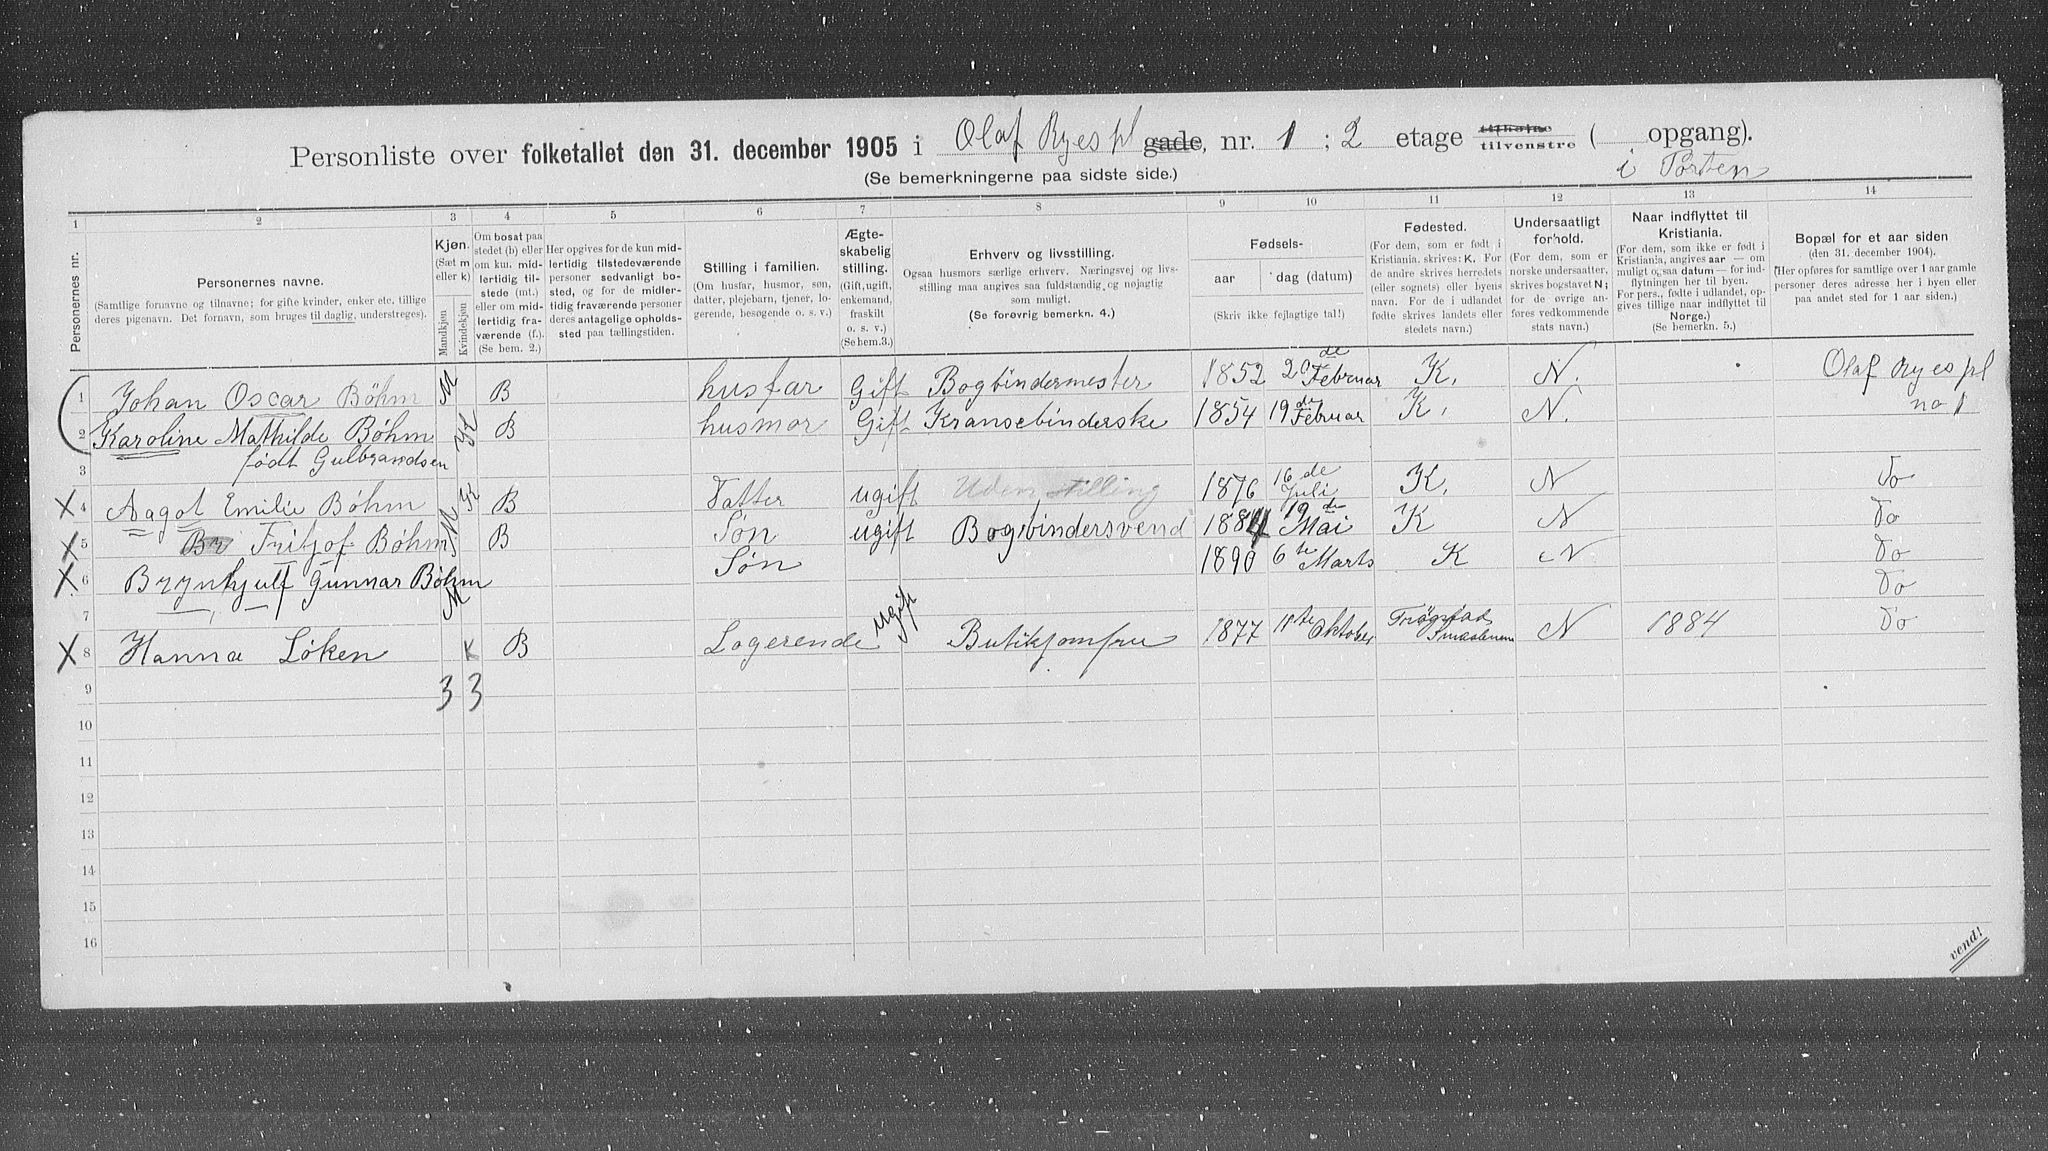 Personliste over folketallet den 31. december 1905 i Olaf Ryes pl gade, nr. 1 ; 2 etage tilhøire tilvenstre ( opgang).
(Se bemerkningerne paa sidste side.) i Porten
1 2 3 4 5 6 7 8 9 10 11 12 13 14
Personernes nr.
Personernes navne.
(Samtlige fornavne og tilnavne; for gifte kvinder, enker etc. tillige
deres pigenavn. Det fornavn, som bruges til daglig, understreges).
Kjøn.
(Sæt m
eller k)
Mandkjøn
Kvindekjøn
Om bosat paa
stedet (b) eller
om kun midlertidig tilstede (mt.)
eller om midlertidig fraværende (f.).
(Se bem. 2.)
Her opgives for de kun midlertidig tilstedeværende
personer sedvanligt bosted, og for de midlertidig fraværende personer
deres antagelige opholdssted paa tællingstiden.
Stilling i familien.
(Om husfar, husmor, søn,
datter, plejebarn, tjener, logerende, besøgende o. s. v.)
Ægteskabelig
stilling.
(Gift, ugift,
enkemand,
fraskilt
o. s. v.)
(Se bem. 3.)
Erhverv og livsstilling.
Ogsaa husmors særlige erhverv. Næringsvej og livsstilling maa angives saa fuldstændig og nøjagtig
som muligt.
(Se forøvrig bemerkn. 4.)
Fødsels-
aar dag (datum)
(Skriv ikke fejlagtige tal!)
Fødested.
(For dem, som er født i
Kristiania, skrives: K. For
de andre skrives herredets
(eller sognets) eller byens
navn. For de i udlandet
fødte skrives landets eller
stedets navn.)
Undersaatligt
forhold.
(For dem, som er
norske undersaatter,
skrives bogstavet N;
for de øvrige anføres vedkommende
stats navn.)
Naar indflyttet til
Kristiania.
(For dem, som ikke er født i
Kristiania, angives aar — om
muligt ogsaa datum — for indflytningen her til byen.
For pers., fødte i udlandet, opgives tillige naar indflyttet til
Norge.)
(Se bemerkn. 5.)
Bopæl for et aar siden
(den 31. december 1904).
(Her opføres for samtlige over 1 aar gamle
personer deres adresse her i byen eller
paa andet sted for 1 aar siden.)
1 Johan Oscar Böhm M B husfar Gift Bogbindermester 1852 20de Februar K. N. Olaf Ryes pl
2 Karoline Mathilde Böhm K B husmor Gift Kransebinderske 1854 19de Februar K. N. no 1
3 født Gulbrandsen
4 Aagot Emilie Böhm K B Datter ugift Uden stilling 1876 16de Juli K. N Do
5 Br Fritjof Böhm M B Søn ugift Bogbindersvend 1884 19de Mai K N Do
6 Brynhjulf Gunnar Böhm M Søn 1890 6te Marts K N Do
Do
7
8 Hanna Løken K B Logerende ugift Butikjomfru 1877 11te Oktober Trøgstad Smaalenene N 1884 Do
9 3 3
10
11
12
13
14
15
16
vend!